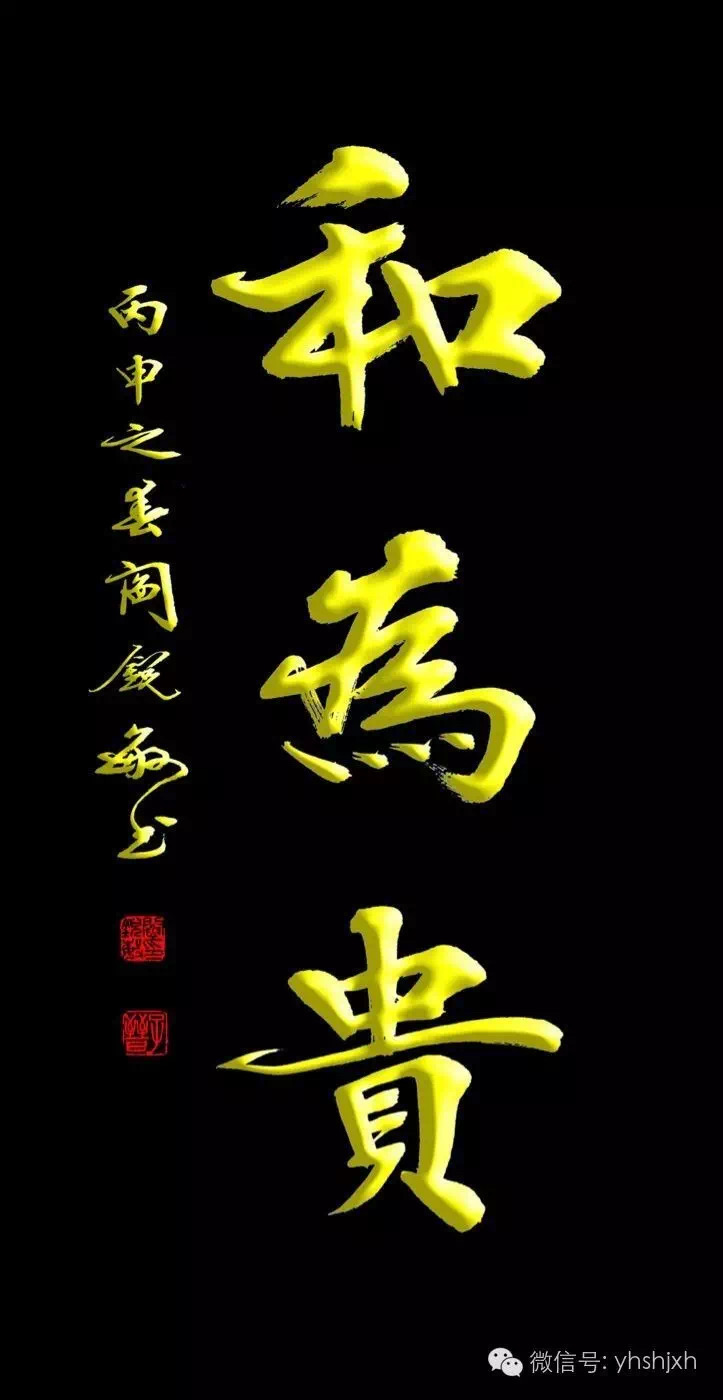 和為貴
丙申之春阎锐敏书
微信号: yhshjxh